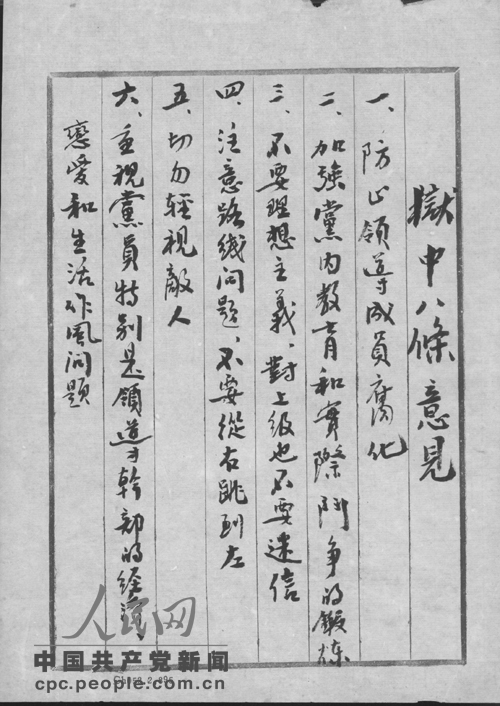 獄中八條意見
一、防止領導成員腐化
二、加強黨內教育和實際鬥争的鍛炼
三、不要理想主義，對上級也不要迷信
四、注意路线问题，不要從右跳到左
五、切勿輕視敵人
六、重視黨員特别是領導幹部的經濟、
戀愛和生活作風问题
人民网
中国共产党新闻
cpc.people.com.cn